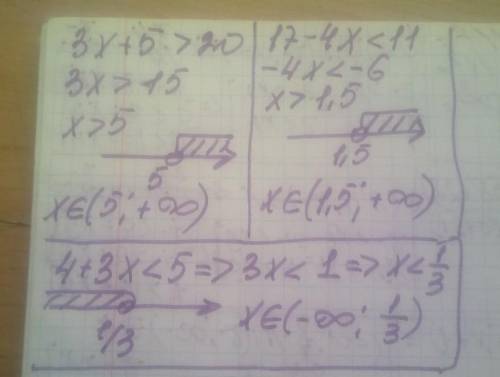 3x+5>20
3x>15
x>5
5
x∈(5;+∞)
17-4x<11
-4x<-6
x>1,5
1,5
x∈(1,5;+∞)
4+3x<5=>3x<1=>x<1/3
1/3
x∈(-∞;1/3)